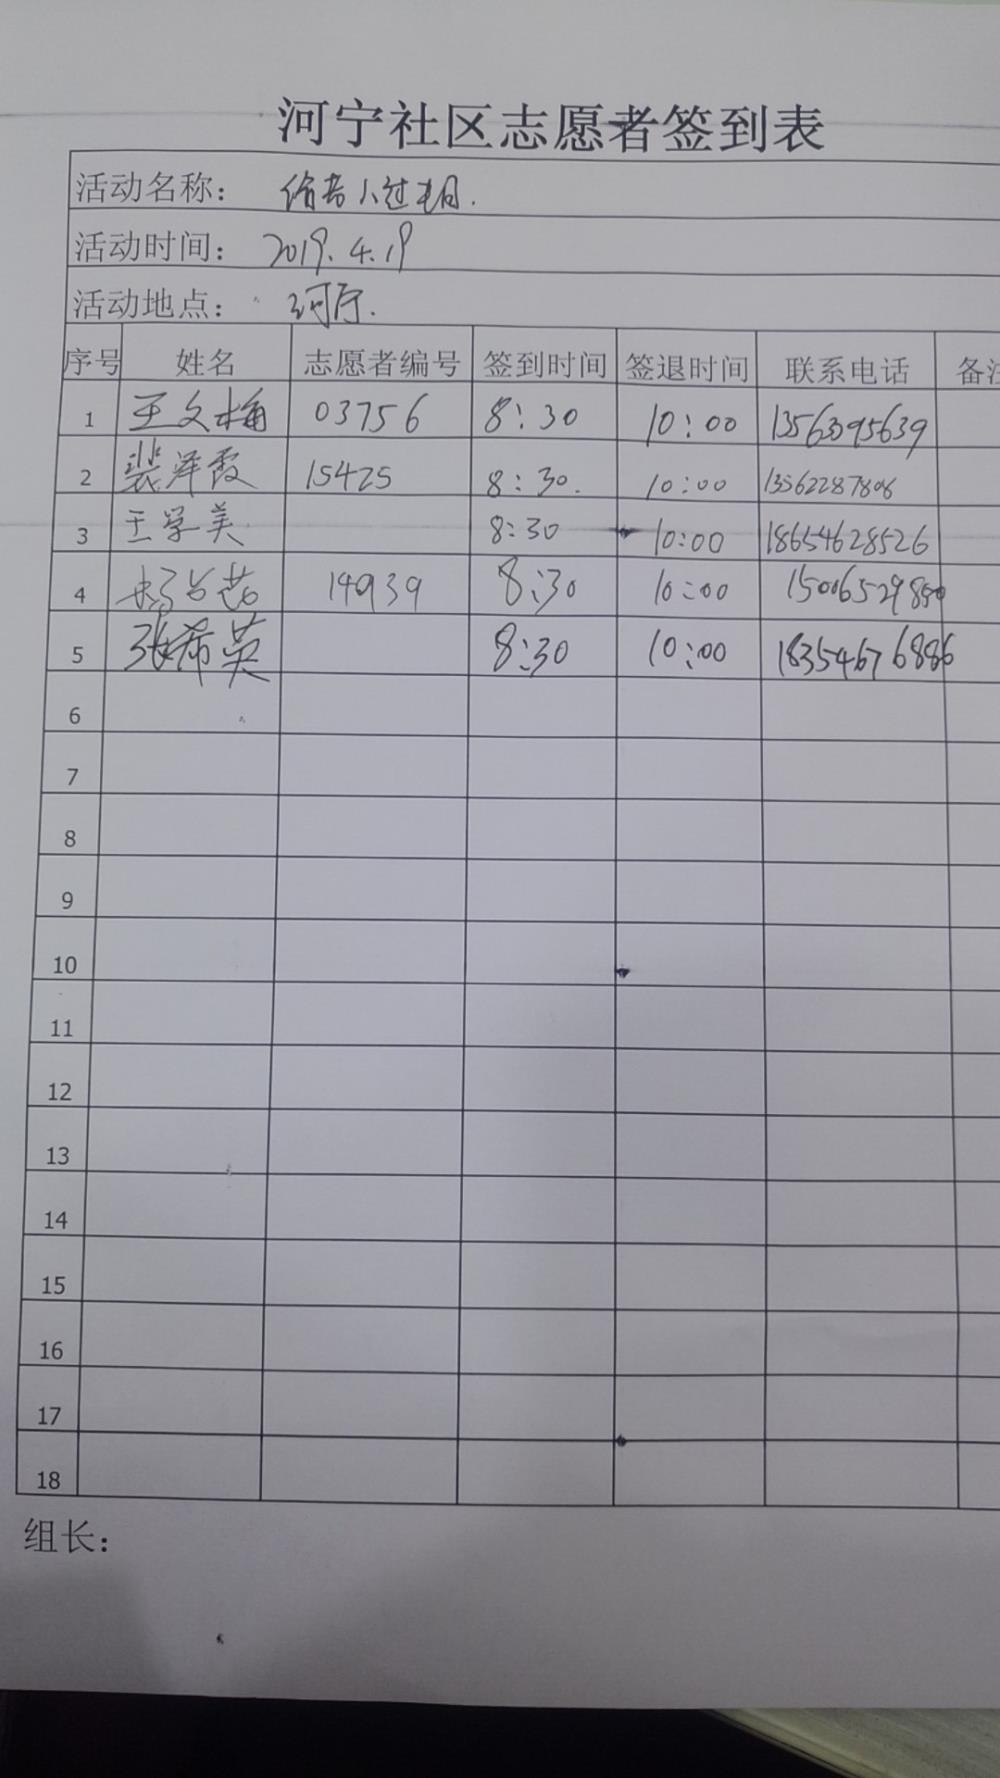 河宁社区志愿者签到表
活动名称： 给老人过生日.
活动时间： 2019.4.19
活动地点： 河宁.
序号 姓名 志愿者编号 签到时间 签退时间 联系电话 备注
1 王文梅 03756 8:30 10:00 13563095639
2 裴泽霞 15425 8:30. 10:00 13562287806
3 王学美 8:30 10:00 18654628526
4 14939 8:30 10:00 15006529850
5 张希英 8:30 10:00 18354676886
6
7
8
9
10
11
12
13
14
15
16
17
18
组长：